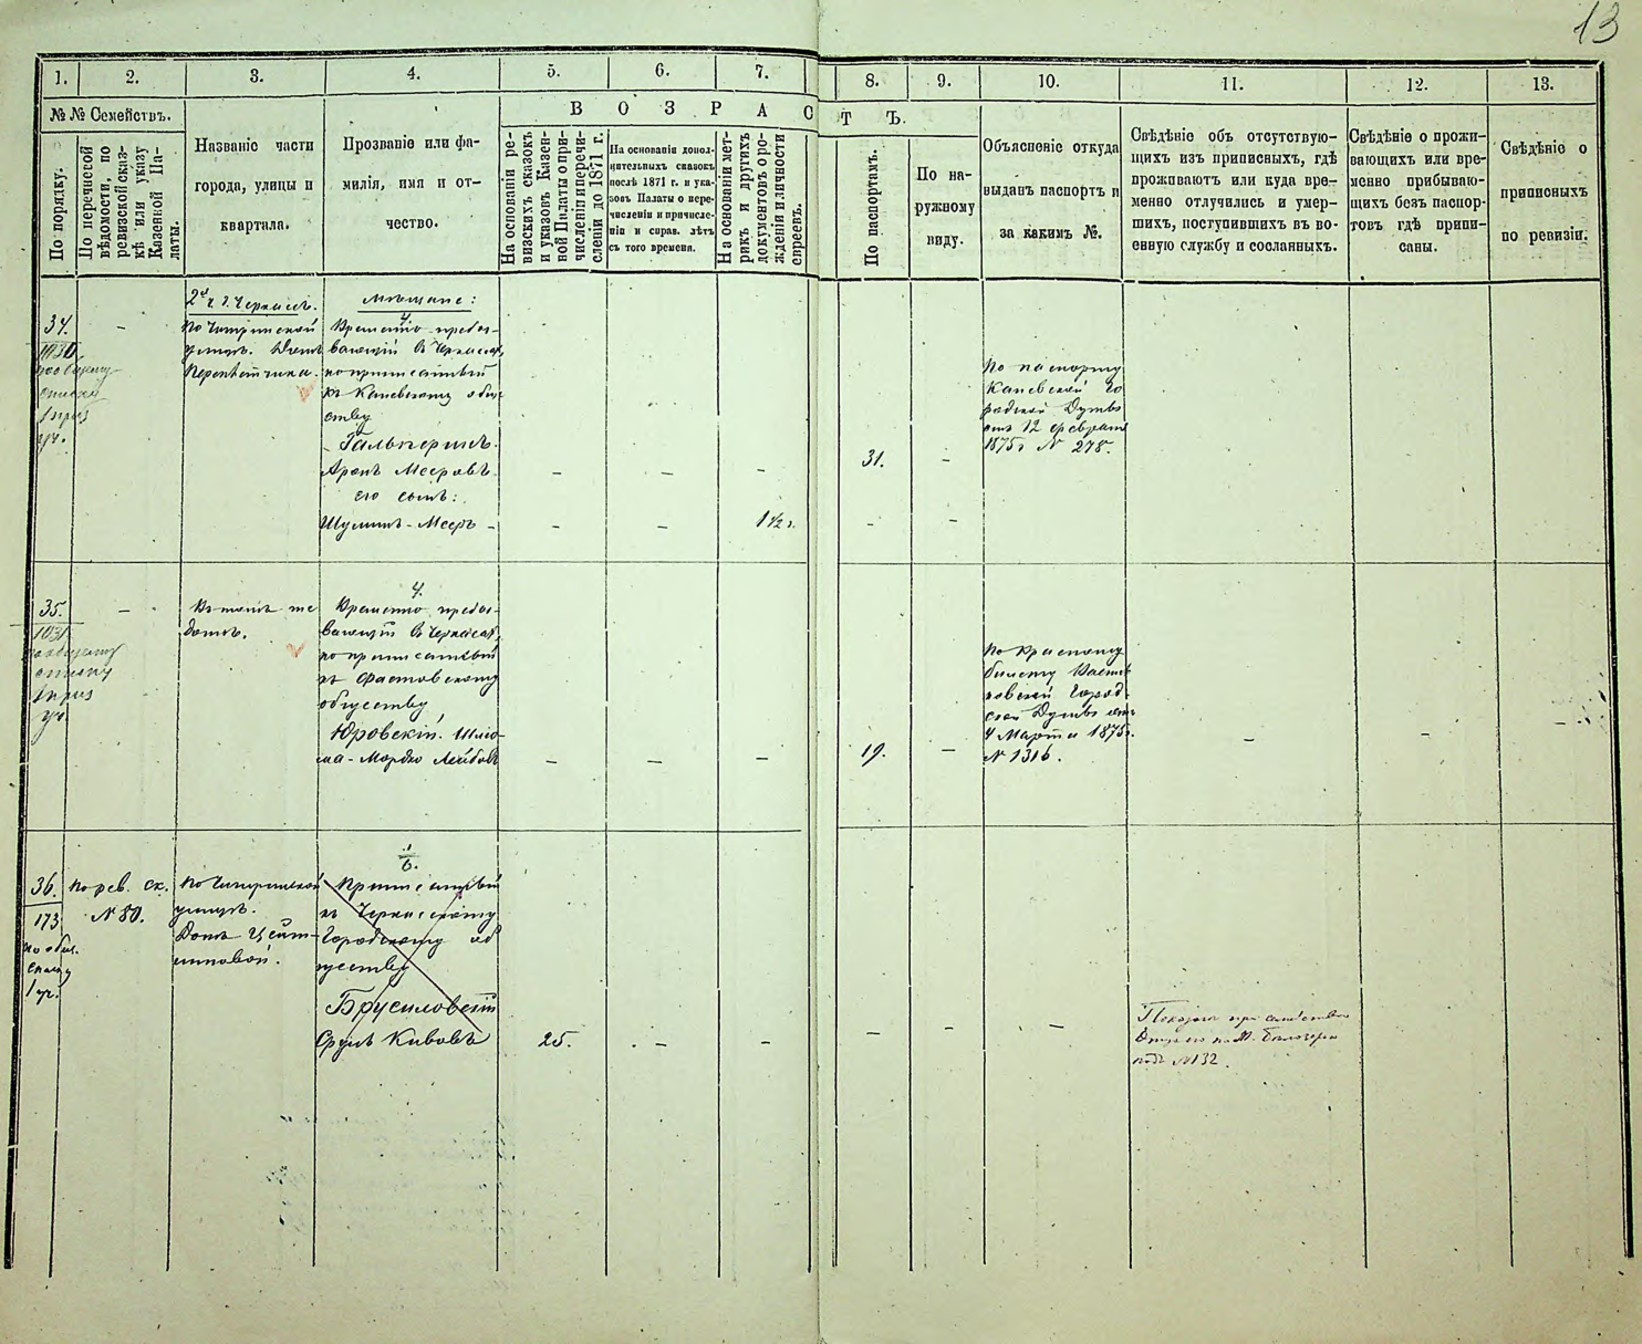 13
1. 2. 3. 4. 5. 6. 7. 8. 9. 10. 11. 12. 13.
№ № Семействъ.
По порядку.
По перечневой
вѣдомости, по
ревизской сказ-
кѣ или указу
Казенной Па-
латы.
Названіе части
города, улицы и
квартала.
Прозваніе или фа-
милія, имя и от-
чество.
ВОЗРАСТЪ.
На основаніи ре-
визскихъ сказокъ
и указовъ Казен-
ной Палаты о при-
численіи и перечи-
сленіи до 1871 г.
На основаніи допол-
нительныхъ сказокъ
послѣ 1871 г. и ука-
зовъ Палаты о пере-
численіи и причисле-
ніи и справ. лѣтъ
съ того времени.
На основаніи мет-
рикъ и другихъ
документовъ о ро-
жденіи и личности
евреевъ.
По паспортамъ.
По на-
ружному
виду.
Объясненіе откуда
выданъ паспортъ и
за какимъ №.
Свѣдѣніе объ отсутствую-
щихъ изъ приписныхъ, гдѣ
проживаютъ или куда вре-
менно отлучились и умер-
шихъ, поступившихъ въ во-
енную службу и сосланныхъ.
Свѣдѣніе о прожи-
вающихъ или вре-
менно прибываю-
щихъ безъ паспор-
товъ гдѣ припи-
саны.
Свѣдѣніе о
приписныхъ
по ревизіи.
34.
1030
по общему
списку
1 приз
уч.
–
2й ч. г. Черкассъ.
По Чигринской
улицѣ. Домъ
Перепѣтчика.
Мѣщане:
4.
Временно пребы-
вающій въ Черкассахъ,
но приписанный
къ Каневскому обще
ству
Гальперинъ.
Аронъ Мееровъ – – – 31. –
его сынъ:
Шулимъ-Мееръ – – – 1½ г. – –
По паспорту
Каневской Го
родской Думы
отъ 12 февраля
1875 г. № 278.
35.
1031
по общему
списку
1 приз
уч.
–
Въ томъ же
домѣ.
4.
Временно пребы-
вающій въ Черкассахъ,
но приписанный
къ Фастовскому
обществу
Юровскій. Шлио-
ма-Мордко Лейбовъ – – – 19. –
По красному
билету Васил
ковской Город-
ской Думы отъ
4 Марта 1875 г.
№ 1316.
– – –
36.
173
по общ.
списку
1 уч.
По рев. ск.
№ 80.
По Чигринской
улицѣ.
Домъ Цейт-
линовой.
1/6.
Приписанный
къ Черкасскому
Городскому об
ществу
Брусиловскій
Сруль Кивовъ 25. – – – – –
Показанъ при семействѣ
Отца его по М. Бѣлозерье
подъ № 132.